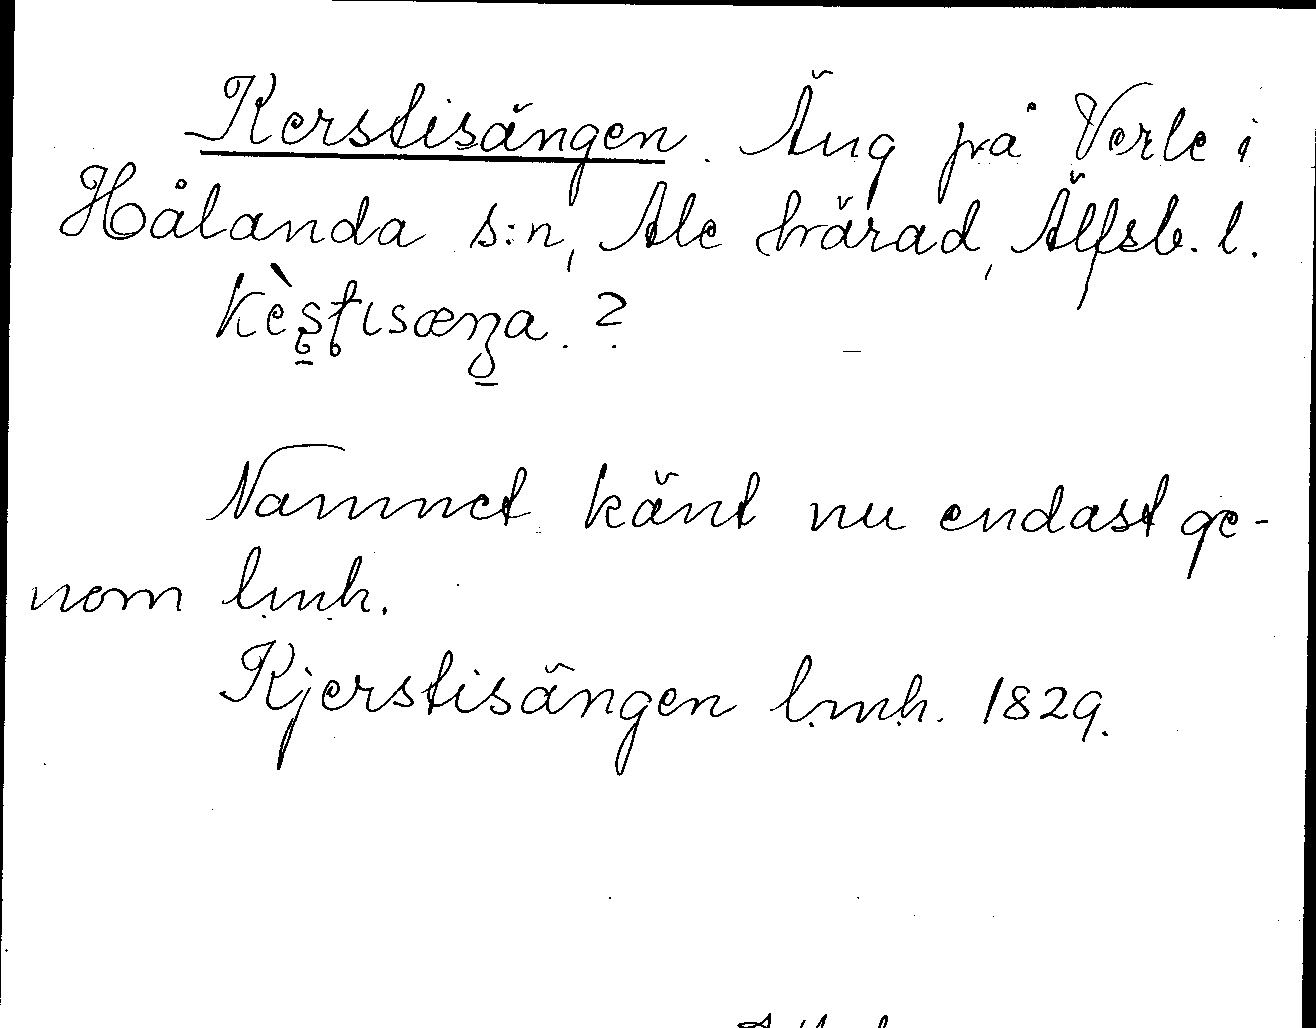 Kerstisängen. Äng på Verle i
Hålanda s:n, Ale härad, Älfsb. l.
Namnet känt nu endast ge-
nom l.m.h.
Kjerstisängen l.m.h. 1829.